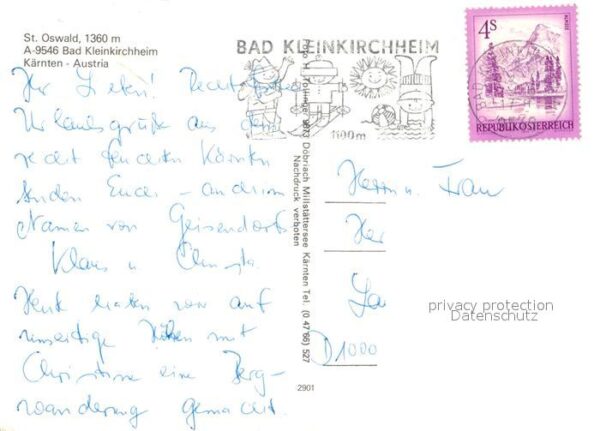 St. Oswald, 1360 m
A-9546 Bad Kleinkirchheim
Kärnten - Austria
BAD KLEINKIRCHHEIM
1100 m
4S
REPUBLIK ÖSTERREICH
Ihr Lieben! Recht
Urlaubsgrüße aus dem
recht feuchten Kärnten
senden Euch
Namen von Geisendorfs
Klaus u. Christa.
Heute haben wir auf
umseitige Höhen mit
Christine eine Berg-
wanderung gemacht.
9873 Döbriach Millstättersee Kärnten Tel. (0 47'66) 527
Nachdruck verboten
2901
Herrn u. Frau
D1000
privacy protection
Datenschutz